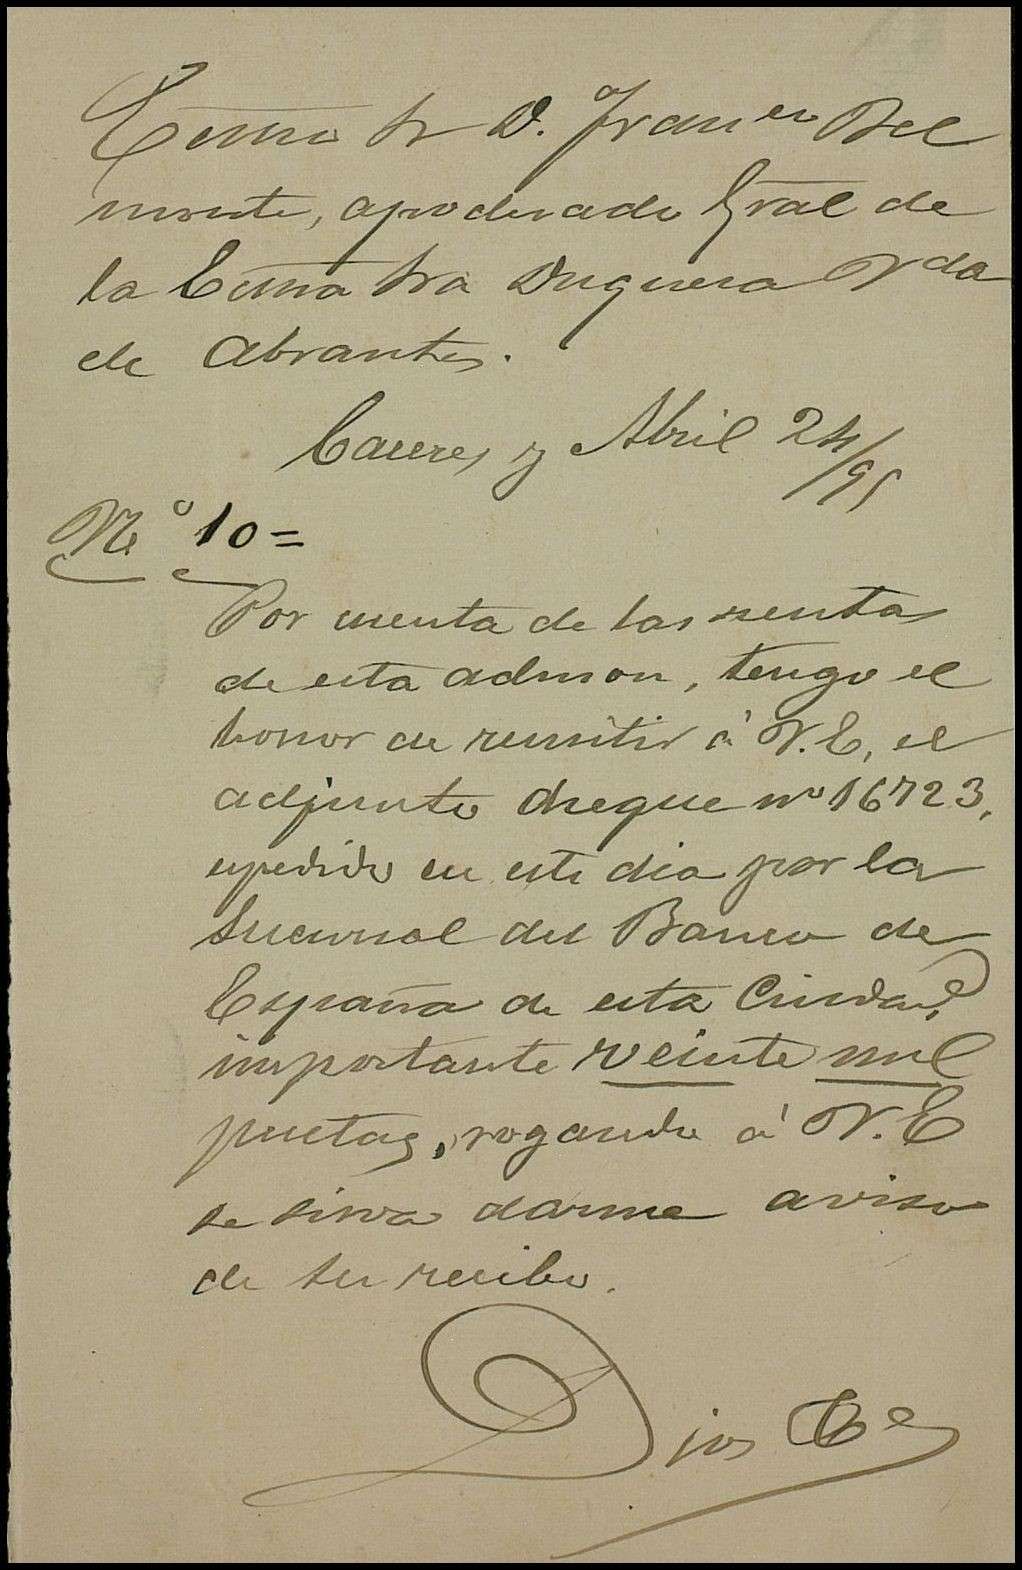 Excmo Sr D. Franco Bel
monte, apoderado Gral de
la Excma Sra Duquesa Vda
de Abrantes.
Caceres y Abril 24/95
No 10=
Por cuenta de las rentas
de esta admon, tengo el
honor de remitir á V.E, el
adjunto cheque no 16723,
expedido en este dia por la
Sucursal del Banco de
España de esta Ciudad,
importante veinte mil
pesetas, rogando á V.E
se sirva darme aviso
de su recibo.
Dios